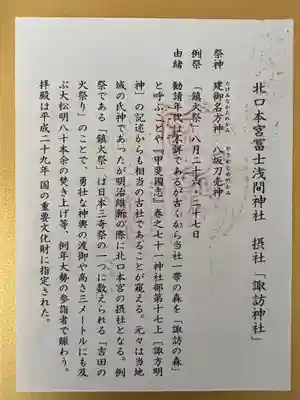 北口本宮冨士浅間神社 摂社 「諏訪神社」
たけみなかたのかみ やさかとめのかみ
祭神 建御名方神 八坂刀売神
例祭 「鎮火祭」八月二十六、二十七日
由緒 勧請年代は不詳であるが古くから当社一帯の森を「諏訪の森」
と呼ぶことや『甲斐國志』巻之七十一神社部第十七上〔諏方明
神〕の記述からも相当の古社であることが窺える。元々は当地
域の氏神であったが明治維新の際に北口本宮の摂社となる。例
祭である「鎮火祭」は日本三奇祭の一つに数えられる「吉田の
火祭り」のことで、勇壮な神輿の渡御や高さ三メートルにも及
ぶ大松明八十本余の焚き上げ等、例年大勢の参詣者で賑わう。
拝殿は平成二十九年 国の重要文化財に指定された。